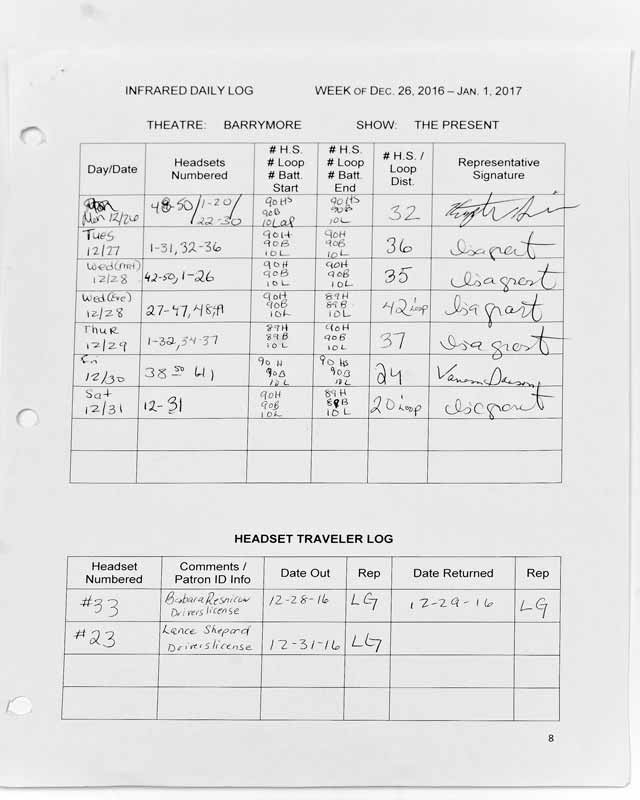 INFRARED DAILY LOG WEEK OF DEC. 26, 2016 – JAN. 1, 2017
THEATRE: BARRYMORE SHOW: THE PRESENT
Day/Date Headsets Numbered # H.S. # Loop # Batt. Start # H.S. # Loop # Batt. End # H.S. / Loop Dist. Representative Signature
Mon 12/26 48-50/1-20/22-30 90HS 90B 10Lap 90HS 90B 10L 32
Tues 12/27 1-31, 32-36 90H 90B 10L 90H 90B 10L 36
Wed (Mat) 12/28 42-50, 1-26 90H 90B 10L 90H 90B 10L 35
Wed (Eve) 12/28 27-47, 48, 90H 90B 10L 89H 89B 10L 42 loop
Thur 12/29 1-32, 34-37 89H 90B 10L 90H 90B 10L 37
Fri 12/30 38 50 90 H 90B 10L 90 HS 90B 10L 24
Sat 12/31 12-31 90H 90B 10L 89H 89B 10L 20 loop
HEADSET TRAVELER LOG
Headset Numbered Comments / Patron ID Info Date Out Rep Date Returned Rep
#33 Barbara Resnicow Drivers license 12-28-16 LG 12-29-16 LG
#23 Lance Shepard Drivers license 12-31-16 LG
8